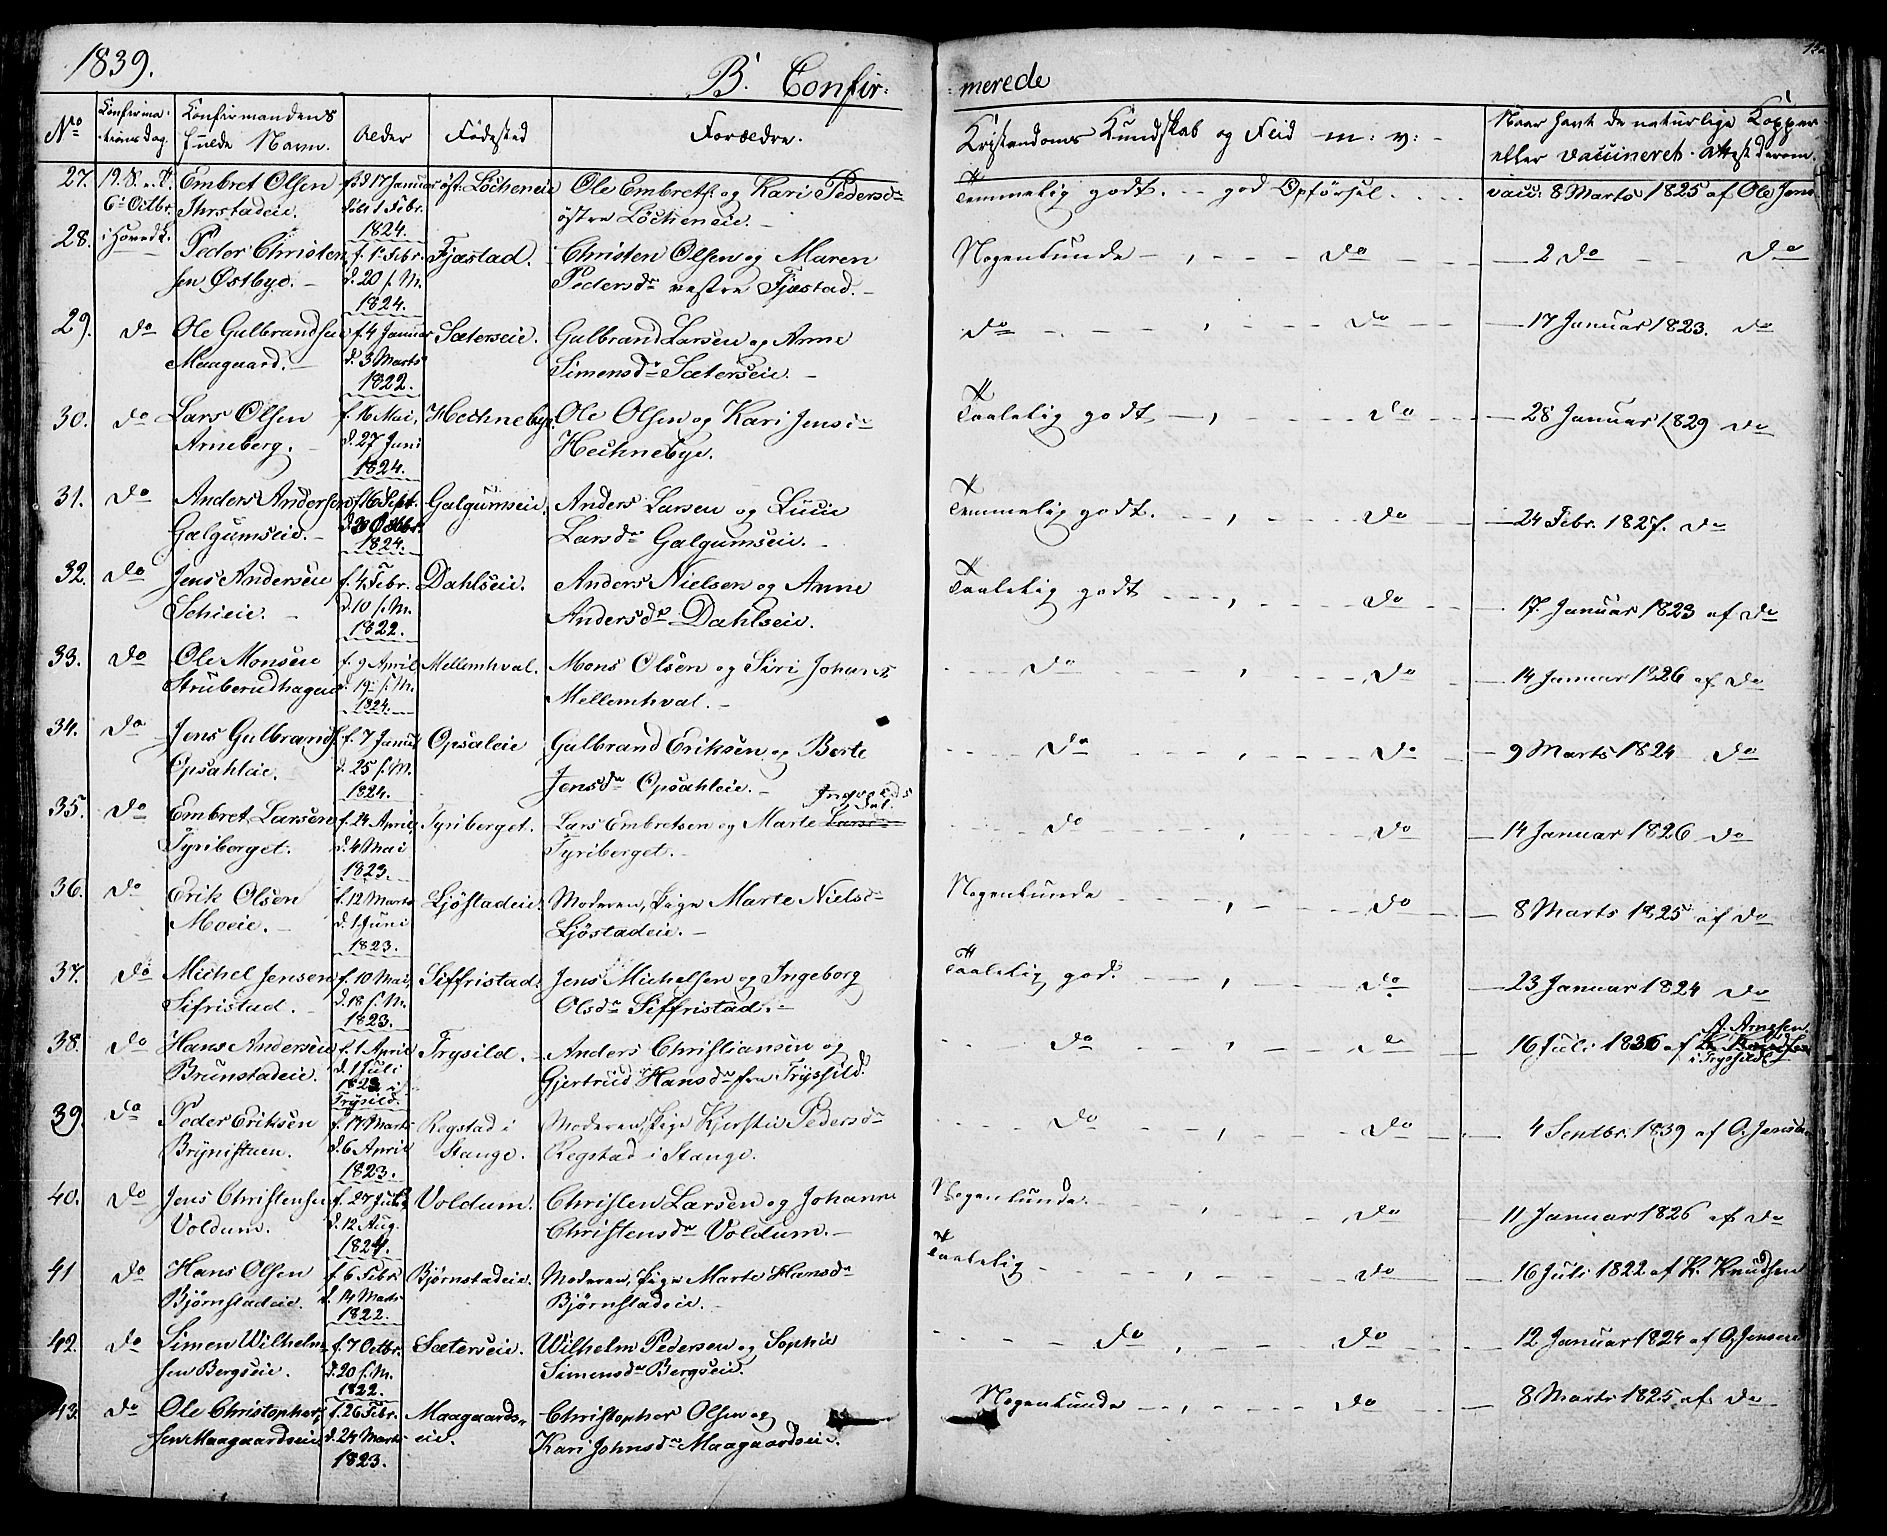 1839.
B. Confir-
merede
No
Confirma-
tions dag.
Confirmandens
fulde Navn.
Alder
Fødested
Forældre.
Kristendoms Kundskab og Flid m: v:
Naar havt de naturlige Kopper
eller vaccineret. Attest derom.
27. 19. S. e. T. Embret Olsen f. d 17 Januar øst. Löcheneie Ole Embrets. og Kari Pedersdr Temmelig godt. - god Opförsel. vacc. 8 Marts 1825 af Ole Jens
6te Octbr. døbt 1 Febr. østre Löcheneie.
1824.
28. i Hovedk. Peder Christen f. 1ste Febr. Fjæstad. Christen Olsen og Maren Nogenlunde - do - 2 do - do
sen Østbye. d. 20 s. M. Pedersdr vestre Fjæstad.
1824.
29. do Ole Gulbrandsen f. 4 Januar Sæterseie. Gulbrand Larsen og Anne do - do - 17 Januar 1823. do
Maagaard. d. 3 Marts Simensdr Sæterseie.
1822.
30. do Lars Olsen f. 16 Mai, Hechnebye. Ole Olsen og Kari Jensdr Taalelig godt - do - 28 Januar 1829 do
Arneberg. d. 27 Juni Hechnebye.
1824.
31. do Anders Andersen f. 16 Sept. Galgumseie. Anders Larsen og Lucie Temmelig godt. - do - 24 Febr. 1827. do
Galgumseie. d. 20 Octbr. Larsdr Galgumseie.
1824.
32. do Jens Andersen f. 4 Febr. Dahlseie. Anders Nielsen og Anne Taalelig godt - do - 17 Januar 1823 af do
Schieie. d. 10 s. M. Andersdr Dahlseie.
1822.
33. do Ole Monsen f. 9 April Mellemhval. Mons Olsen og Siri Johans do - do - 14 Januar 1826 af do
Struberudhagen d. 19 s. M. Mellemhval.
1824.
34. do Jens Gulbrands. f. 7 Januar Opsaleie Gulbrand Eriksen og Berte do - do - 9 Marts 1824 do
Opsahleie. d. 25 s. M. Jensdr Opsahleie.
1824.
35. do Embret Larsen f. 24 April, Tyriberget. Lars Embretsen og Marte Larsdr do - do - 14 Januar 1826 do
Tyriberget. d. 4 Mai Tyriberget.
1823.
36. do Erik Olsen f. 12 Marts Ljöstadeie. Moderen, Pige Marte Nielsdr Nogenlunde - do - 8 Marts 1825 af do
Moeie. d. 1 Juni Ljöstadeie.
1823.
37. do Michel Jensen f. 10 Mai, Siffristad. Jens Michelsen og Ingeborg Taalelig god. - do - 23 Januar 1824 do
Sifristad. d. 18 s. M. Olsdr Siffristad.
1823.
38. do Hans Andersen f. 1 April Trysild. Anders Christiansen og do - do - 16 Juli 1836 af A. Arnesen
Brunstadeie. d. 1 Juli Gjertrud Hansdr fra Tryssild. i Tryssild
1823 i
Trysild.
39. do Peder Eriksen f. 17 Marts Regstad i Moderen, Pige Kjerstie Pedersdr do - do - 4 Septbr. 1839 af O. Jensen
Brynistuen. d. 6 April Stange. Regstad i Stange.
1823.
40. do Jens Christensen f. 27 Juli Voldum. Christen Larsen og Johanne Nogenlunde. - do - 11 Januar 1826 af do
Voldum. d. 12 Aug. Christensdr Voldum.
1824.
41 do Hans Olsen f. 6 Febr. Bjørnstadeie. Moderen, Pige Marte Hansdr Taalelig - do - 16 Juli 1822 af K. Knudsen
Bjørnstadeie. d. 14 Marts Bjørnstadeie.
1822.
42. do Simen Wilhelm f. 7 Octbr. Sæterseie. Wilhelm Pedersen og Sophie do - do - 12 Januar 1824 af O. Jensen
sen Bergseie. d. 20 s. M. Simensdr Bergseie.
1822.
43. do Ole Christopher f. 26 Febr. Maagaards- Christopher Olsen og Nogenlunde - do - 8 Marts 1825 af do
sen Maagaardseie d. 24 Marts eie. Kari Johnsdr Maagaardseie.
1823.